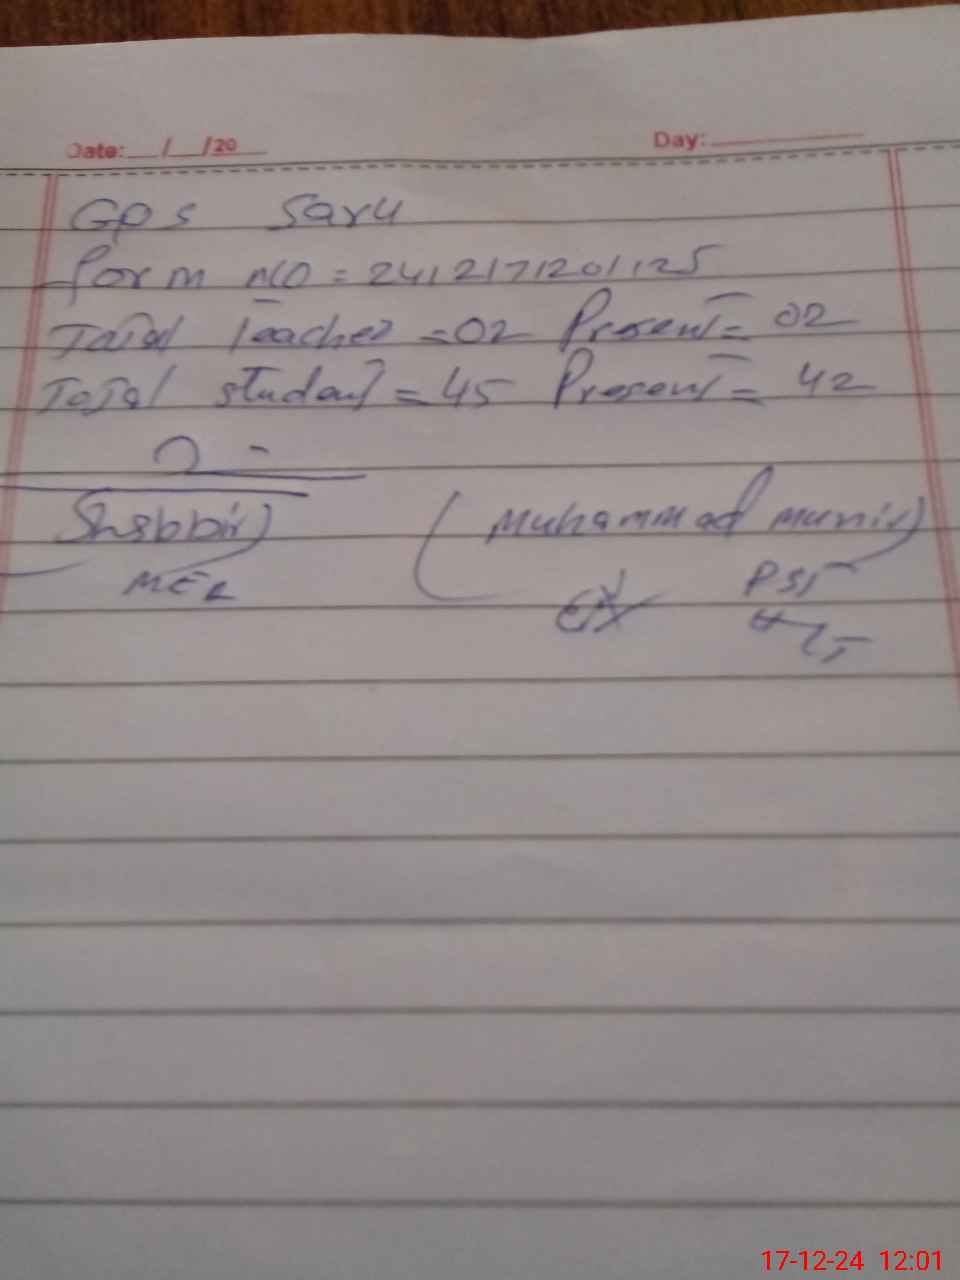 Date: __/__/20__ Day: ______
GPS Saru
form NO = 2412171201125
Total Teacher = 02 Present = 02
Total student = 45 Present = 42
Shabbir) (Muhammad munir)
PST
17-12-24 12:01